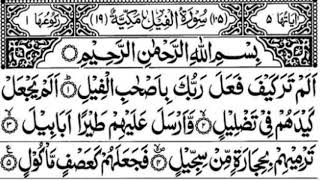 اٰیَاتُهَا ۵ (۱۰۵) سُوْرَةُ الْفِیْلِ مَکِّیَّةٌ (۱۹) رُکُوْعُهَا ۱
بِسْمِ اللّٰهِ الرَّحْمٰنِ الرَّحِیْمِ ۝
اَلَمْ تَرَ کَیْفَ فَعَلَ رَبُّكَ بِاَصْحٰبِ الْفِیْلِ ۝۱ اَلَمْ یَجْعَلْ
کَیْدَهُمْ فِیْ تَضْلِیْلٍ ۝۲ وَّاَرْسَلَ عَلَیْهِمْ طَیْرًا اَبَابِیْلَ ۝۳
تَرْمِیْهِمْ بِحِجَارَةٍ مِّنْ سِجِّیْلٍ ۝۴ فَجَعَلَهُمْ کَعَصْفٍ مَّاْکُوْلٍ ۝۵